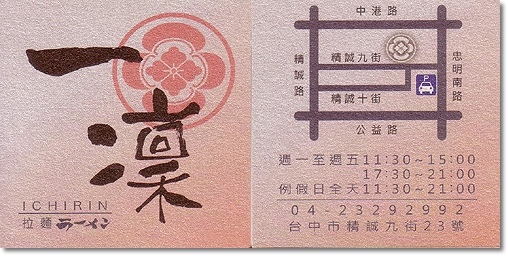 一凛
ICHIRIN
拉麵 ラーメン
中港路
精誠路
精誠九街
忠明南路
P
精誠十街
公益路
週一至週五11:30~15:00
17:30~21:00
例假日全天11:30~21:00
04-23292992
台中市精誠九街23號